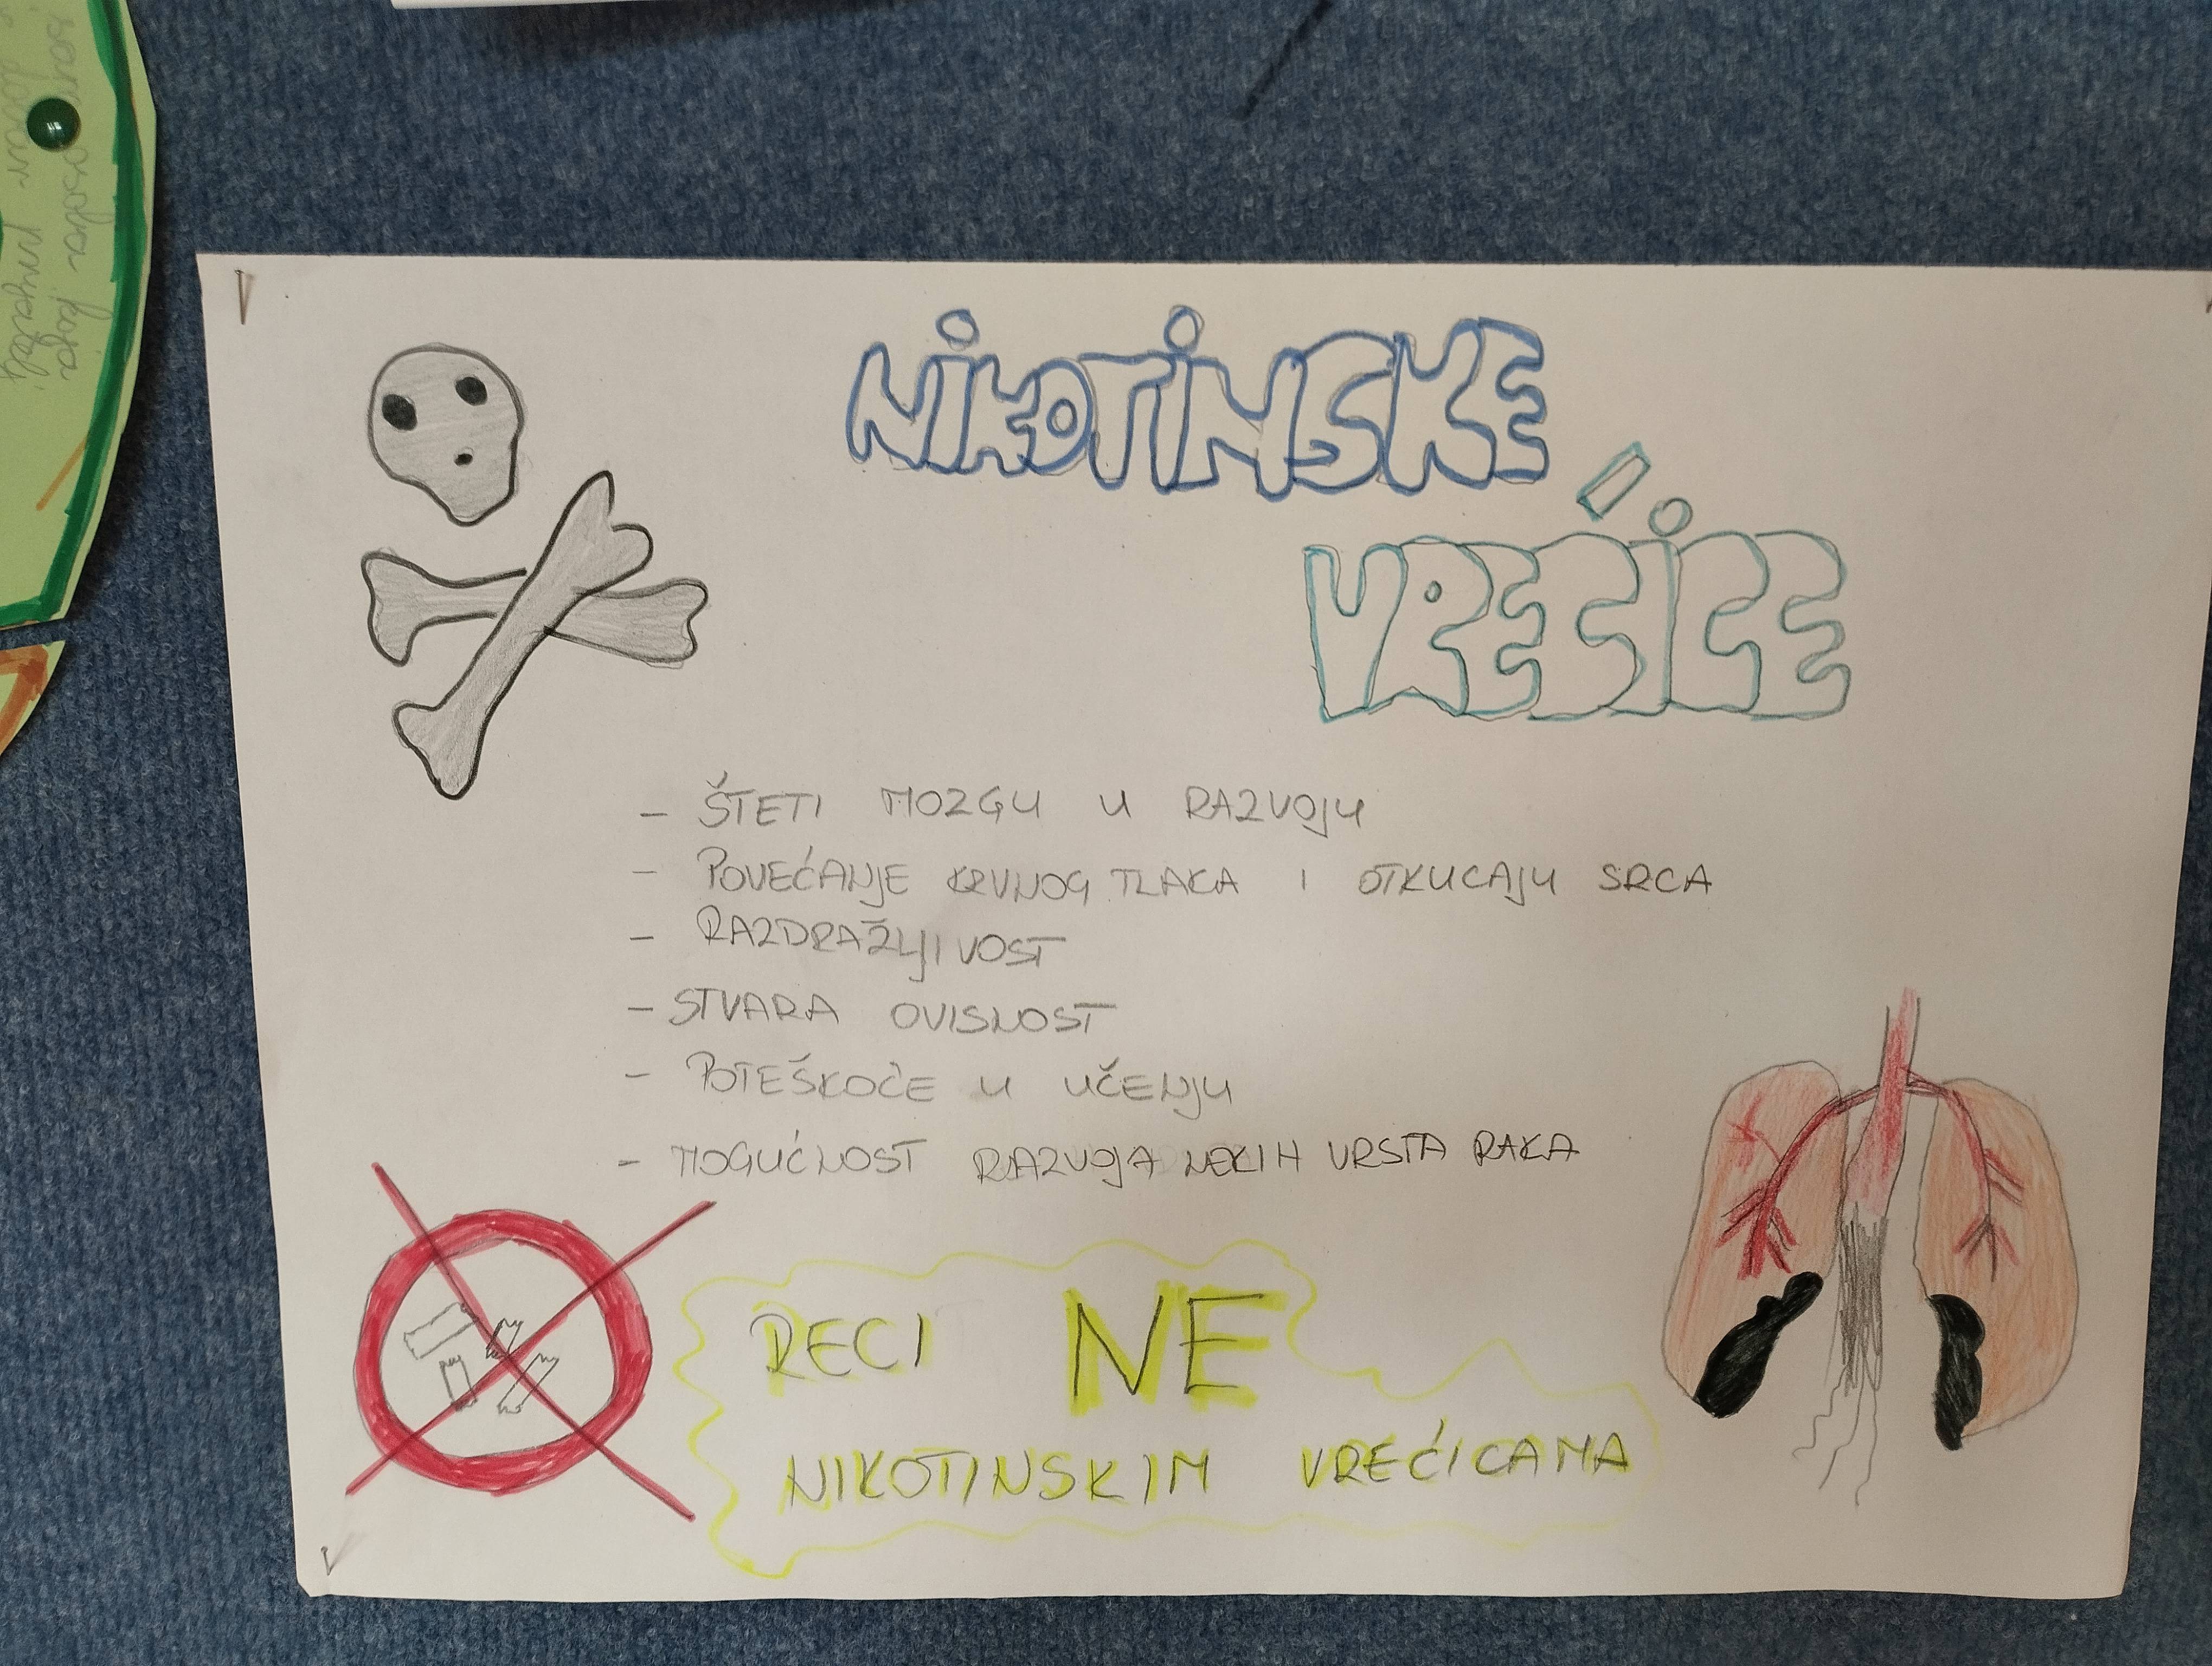 NIKOTINSKE
VREĆICE
- ŠTETI MOZGU U RAZVOJU
- POVEĆANJE KRVNOG TLAKA I OTKUCAJU SRCA
- RAZDRAŽLJIVOST
- STVARA OVISNOST
- POTEŠKOĆE U UČENJU
- MOGUĆNOST RAZVOJA NEKIH VRSTA RAKA
RECI NE
NIKOTINSKIM VREĆICAMA
osoba koja